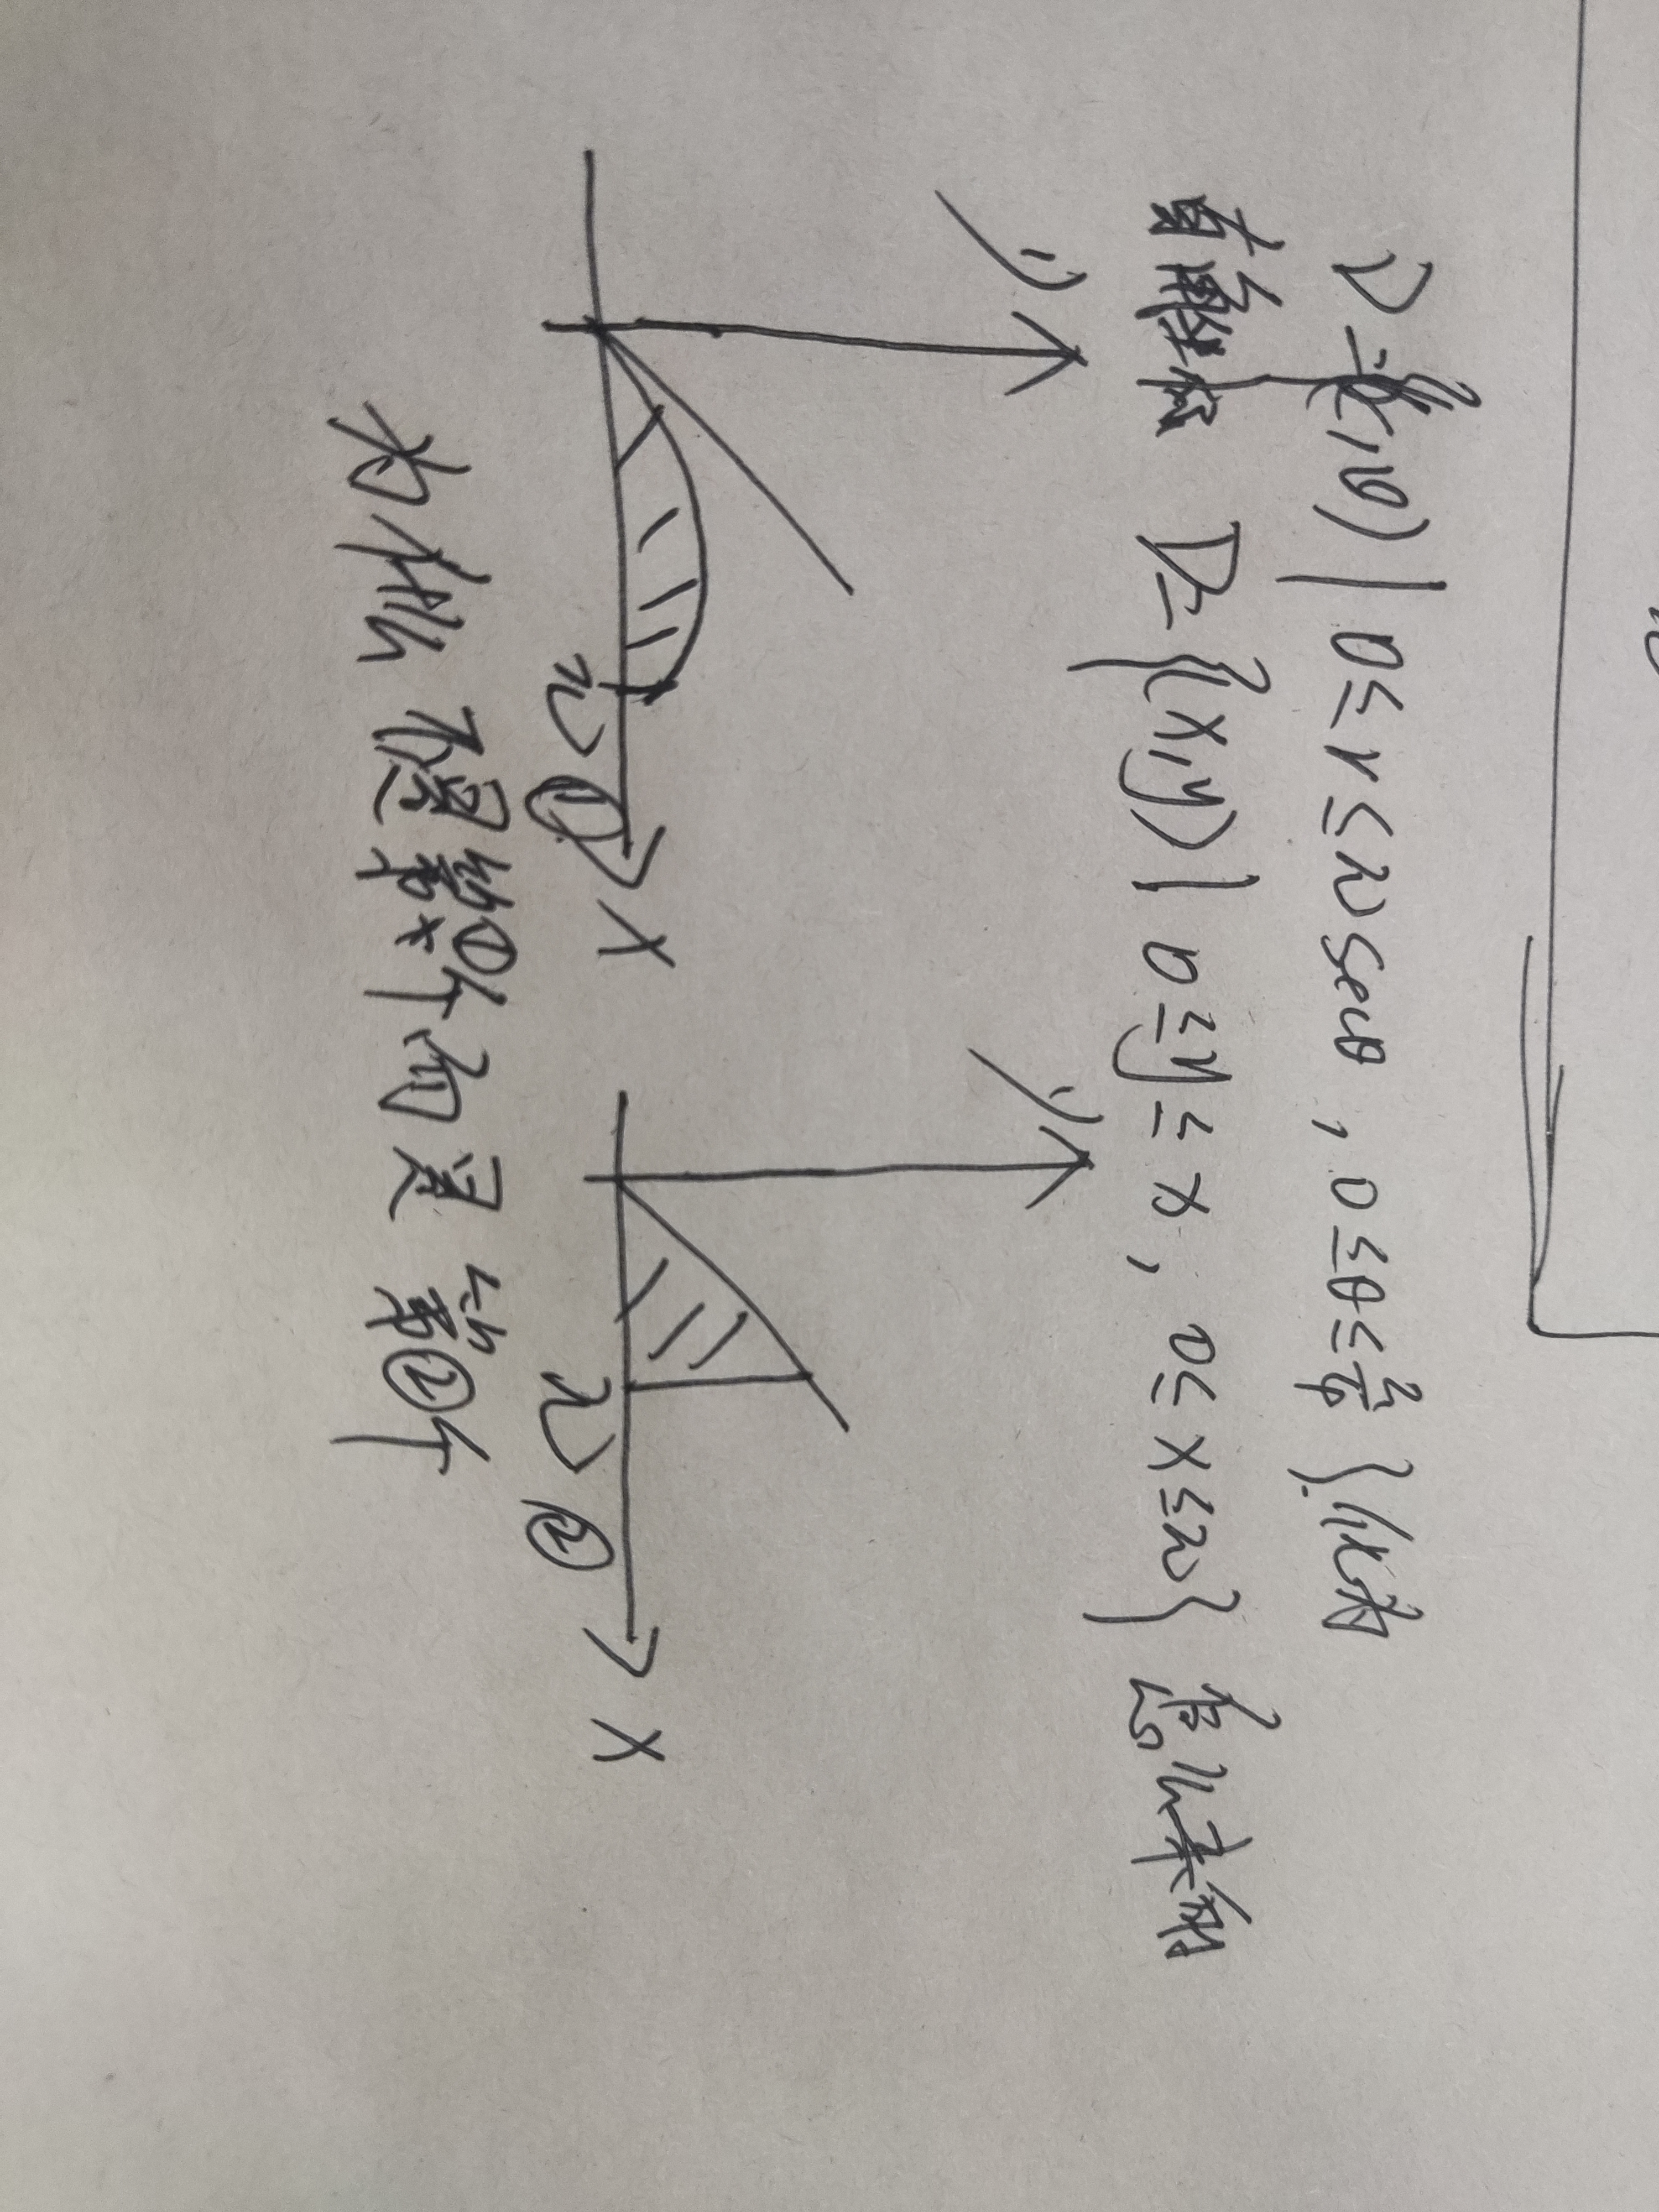 D={(r,θ)| 0≤r≤2secθ, 0≤θ≤π/4} 化为
直角坐标 D={(x,y)| 0≤y≤x, 0≤x≤2} 怎么来的
y
y
x
x
2
①
2
②
为什么不是第①个而是第②个